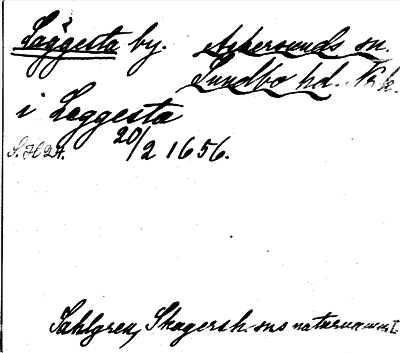 Läggesta by. Askersunds sn.
Sundbo hd. Nke.
i Leggesta
S. H. D. A. 20/2 1656.
Sahlgren, Skagersh. sns naturnamn I.